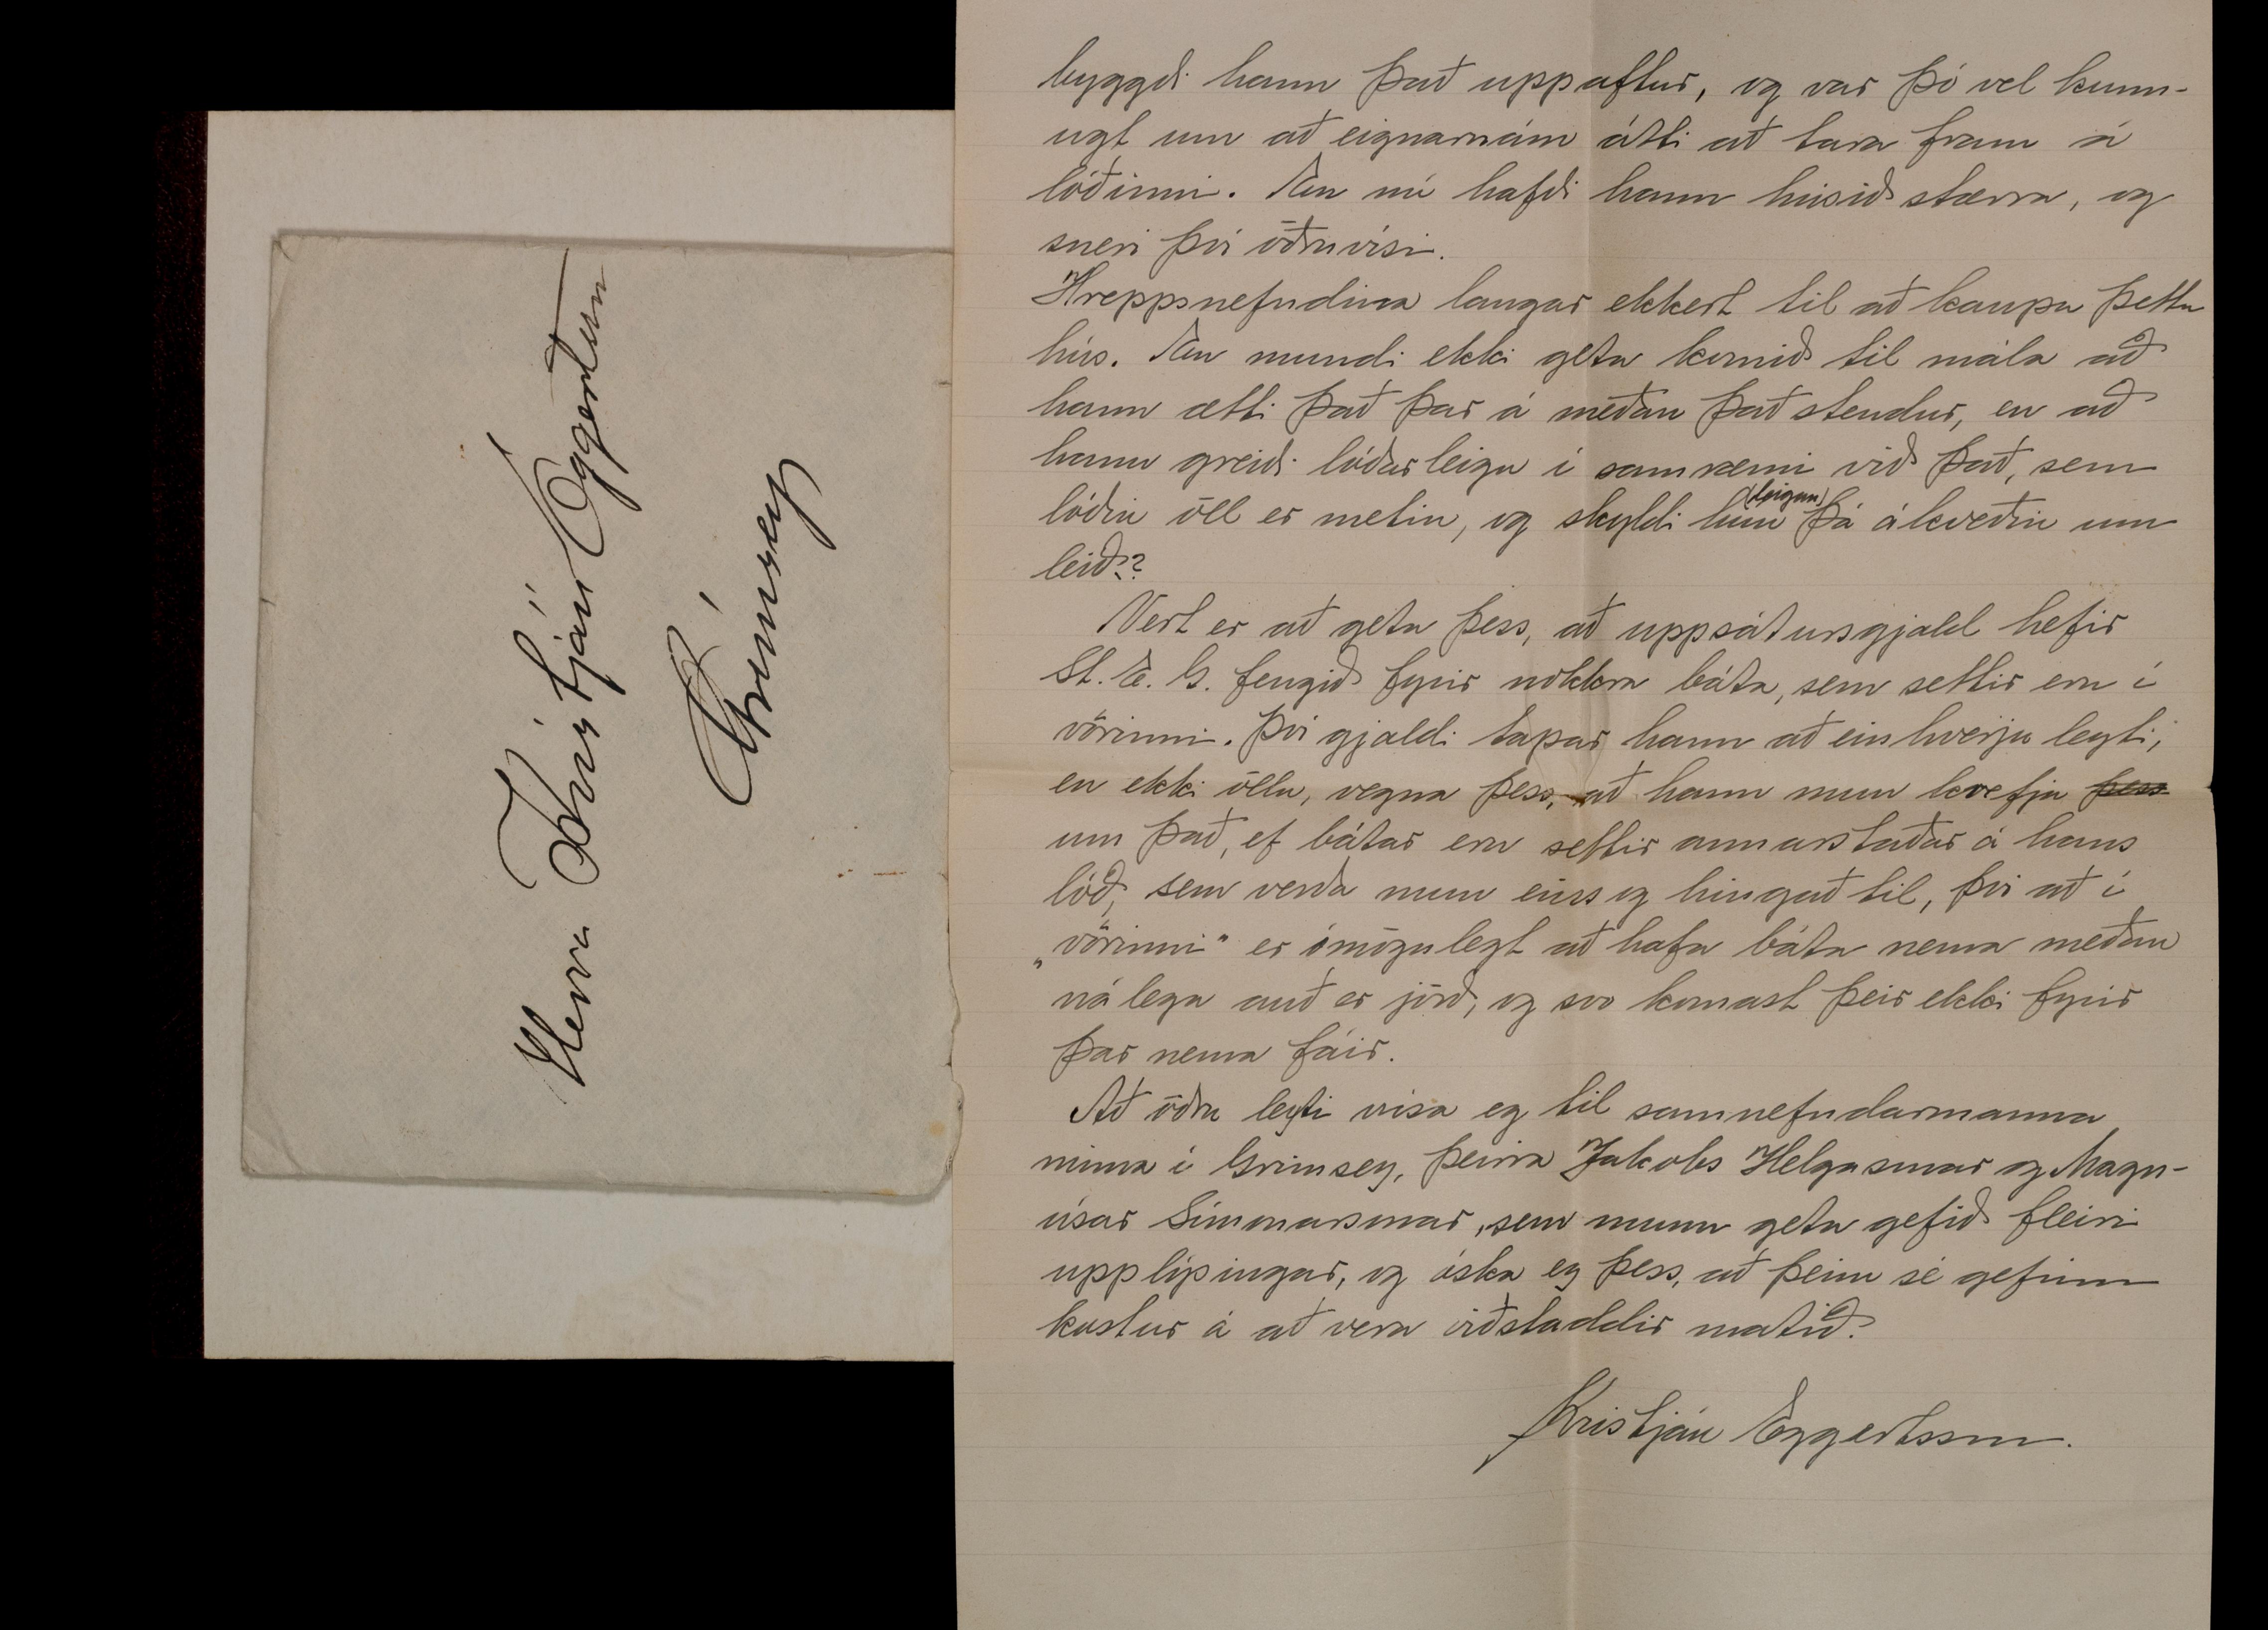 Herra Kristján Eggertsson
Grímsey
byggði hann það uppaftur, og var þó vel kunn-
ugt um að eignarnám átti að fara fram á
lóðinni. En nú hafði hann húsið stærra, og
sneri því öðruvísi.
Hreppsnefndina langar ekkert til að kaupa þetta
hús. En mundi ekki geta komið til mála að
hann ætti það þar á meðan það stendur, en að
hann greiði lóðarleigu í samræmi við það, sem
lóðin öll er metin, og skyldi hún (leigan) þá ákveðin um
leið??
Vert er að geta þess, að uppsátursgjald hefir
St. E. G. fengið fyrir nokkra báta, sem settir eru í
vörinni. Því gjaldi tapar hann að einhverju leyti,
en ekki öllu, vegna þess, að hann mun krefja þess
um það, ef bátar eru settir annarstaðar á hans
lóð, sem verða mun eins og hingað til, því að í
„vörinni" er ómögulegt að hafa báta nema meðan
nálega auð er jörð, og svo komast þeir ekki fyrir
þar nema fáir.
Að öðru leyti vísa eg til samnefndarmanna
minna í Grímsey, þeirra Jakobs Helgasonar og Magn-
úsar Símonarsonar, sem munu geta gefið fleiri
upplýsingar, og óska eg þess, að þeim sé gefinn
kostur á að vera viðstaddir matið.
Kristján Eggertsson.